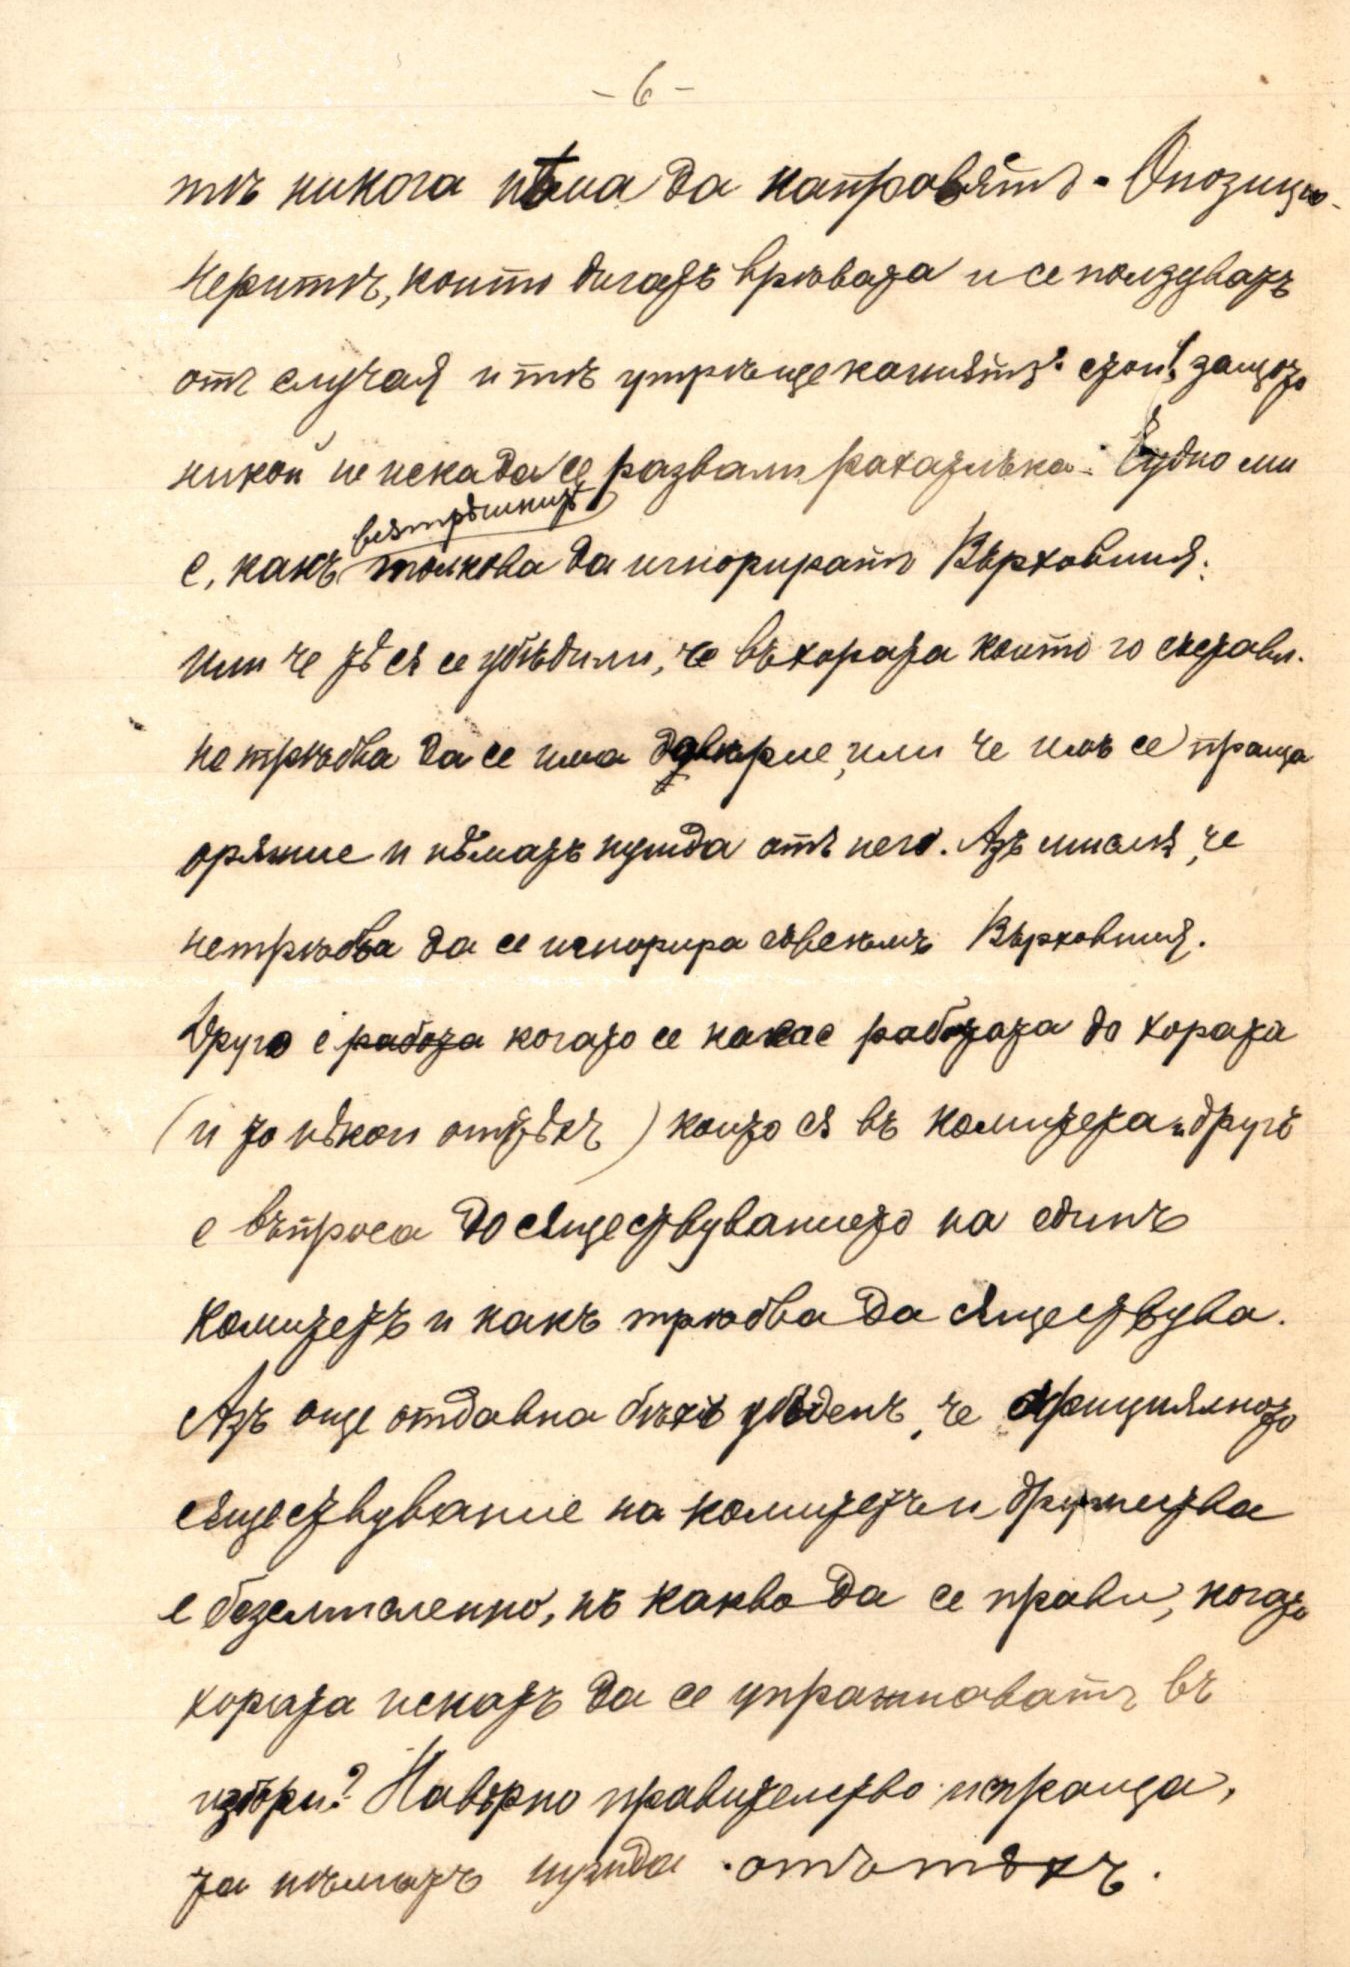 - 6 -
тѣ никога нѣма да направѭтъ. Опозицио-
неритѣ, които дигатъ врѣвата и се ползуватъ
отъ случая и тѣ утрѣ щеканѭтъ стои, защото
никой не иска да се развали рахатлъка. Чудно ми
вѫтрѣшнитѣ
е, какъ толкова да игнориратъ Върховния.
Или че тѣ сѫ се убѣдили, че въ хората които го съставл.
не трѣбва да се има довѣрие, или че имъ се праща
орѫжие и нѣматъ нужда отъ него. Азъ мислѭ, че
нетрѣбва да се игнорира съвсемъ Върховния.
Друго е работа когато се касае работата до хората
(и то нѣкои отъ тѣхъ) които сѫ въ комитета и другъ
е въпроса до сѫществуванието на единъ
комитетъ и какъ трѣбва да сѫществува.
Азъ още отдавна бѣхъ убѣденъ, че официялното
сѫществувание на комитетъ и дружества
е безсмисленно, нъ какво да се прави, когато
хората искатъ да се упражняватъ въ
избори? Навѣрно правителство испраща,
та нѣматъ нужда отъ тѣхъ.